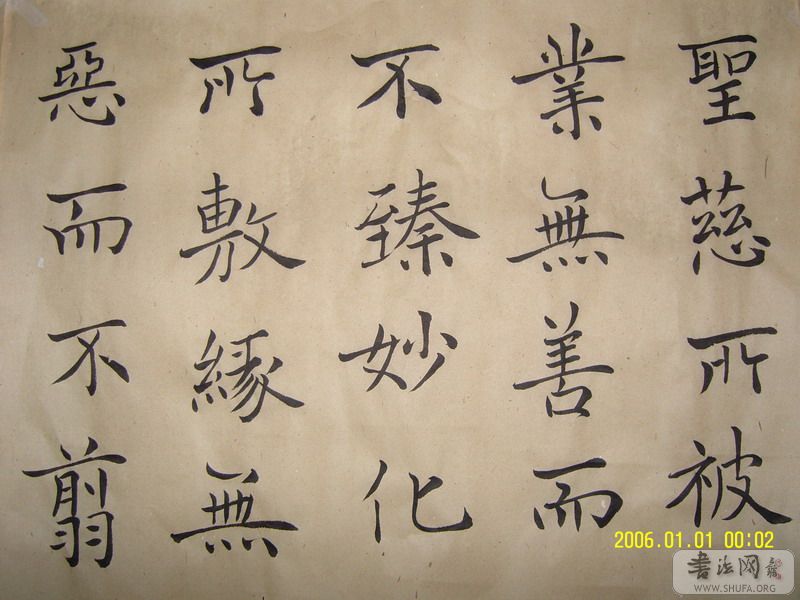 聖慈所被
業無善而
不臻妙化
所敷緣無
惡而不翦
2006.01.01 00:02
书法网
WWW.SHUFA.ORG